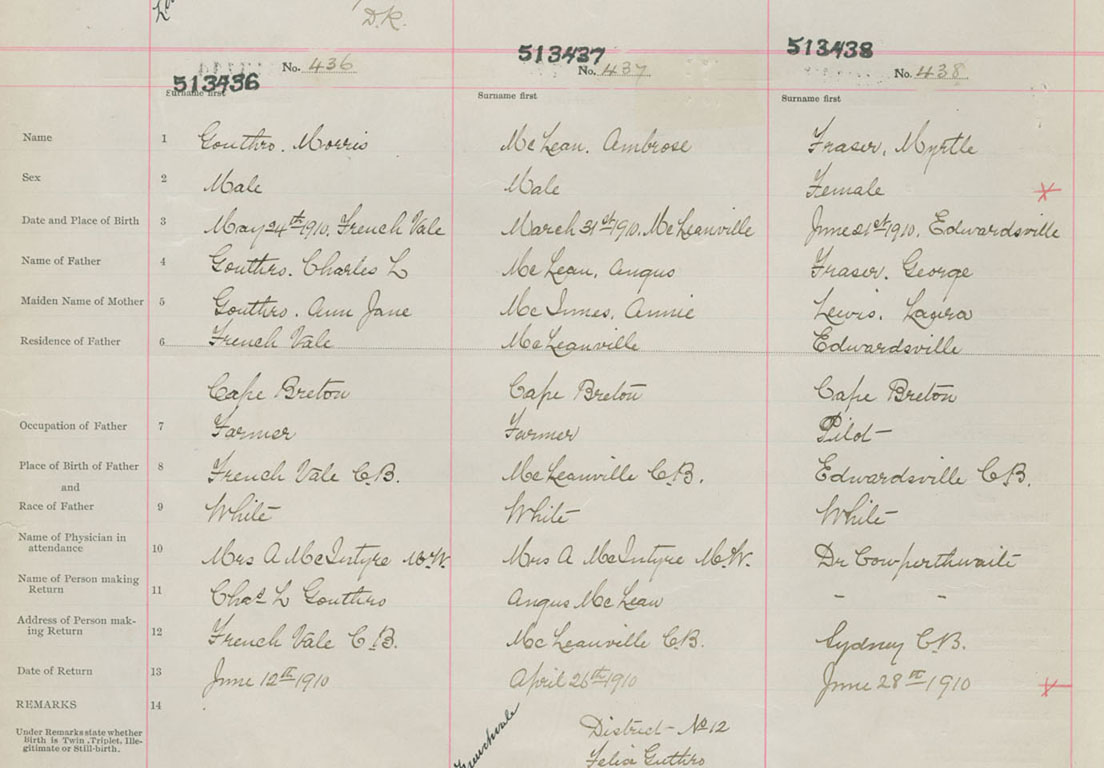 D.R.
513436
No. 436
Surname first
513437
No. 437
Surname first
513438
No. 438
Surname first
Name 1 Gouthro. Morris McLean. Ambrose Fraser, Myrtle
Sex 2 Male Male Female
Date and Place of Birth 3 May 24th 1910. French Vale March 31st 1910. McLeanville June 21st 1910. Edwardsville
Name of Father 4 Gouthro. Charles L McLean, Angus Fraser. George
Maiden Name of Mother 5 Gouthro. Ann Jane McInnes, Annie Lewis. Laura
Residence of Father 6 French Vale McLeanville Edwardsville
Cape Breton Cape Breton Cape Breton
Occupation of Father 7 Farmer Farmer Pilot
Place of Birth of Father 8 French Vale C.B. McLeanville C.B. Edwardsville C.B.
and
Race of Father 9 White White White
Name of Physician in
attendance 10 Mrs A McIntyre M.W. Mrs A McIntyre M.W. Dr Cowperthwaite
Name of Person making
Return 11 Chas L Gouthro Angus McLean - -
Address of Person mak-
ing Return 12 French Vale C.B. McLeanville C.B. Sydney C.B.
Date of Return 13 June 12th 1910 April 26th 1910 June 28th 1910
REMARKS 14
Under Remarks state whether
Birth is Twin, Triplet, Ille-
gitimate or Still-birth.
Frenchvale
District - No 12
Felix Guthro